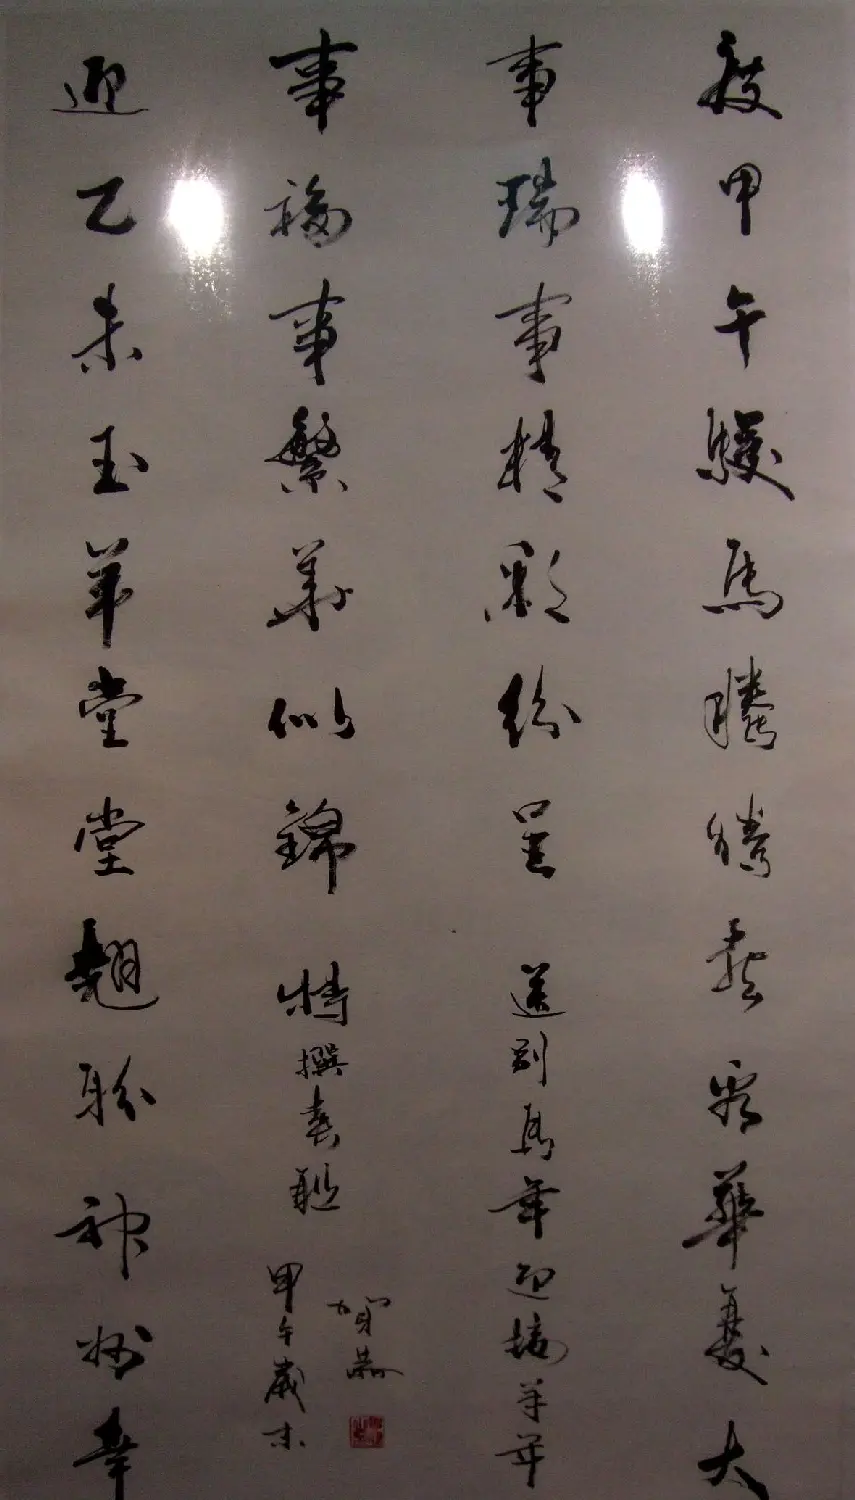 度甲午駿馬騰騰看華夏大
事瑞事精彩紛呈
送别馬年迎接羊年
迎乙未玉羊堂堂翹盼神州幸
事福事繁華似錦
特撰春聯
甲午歲末